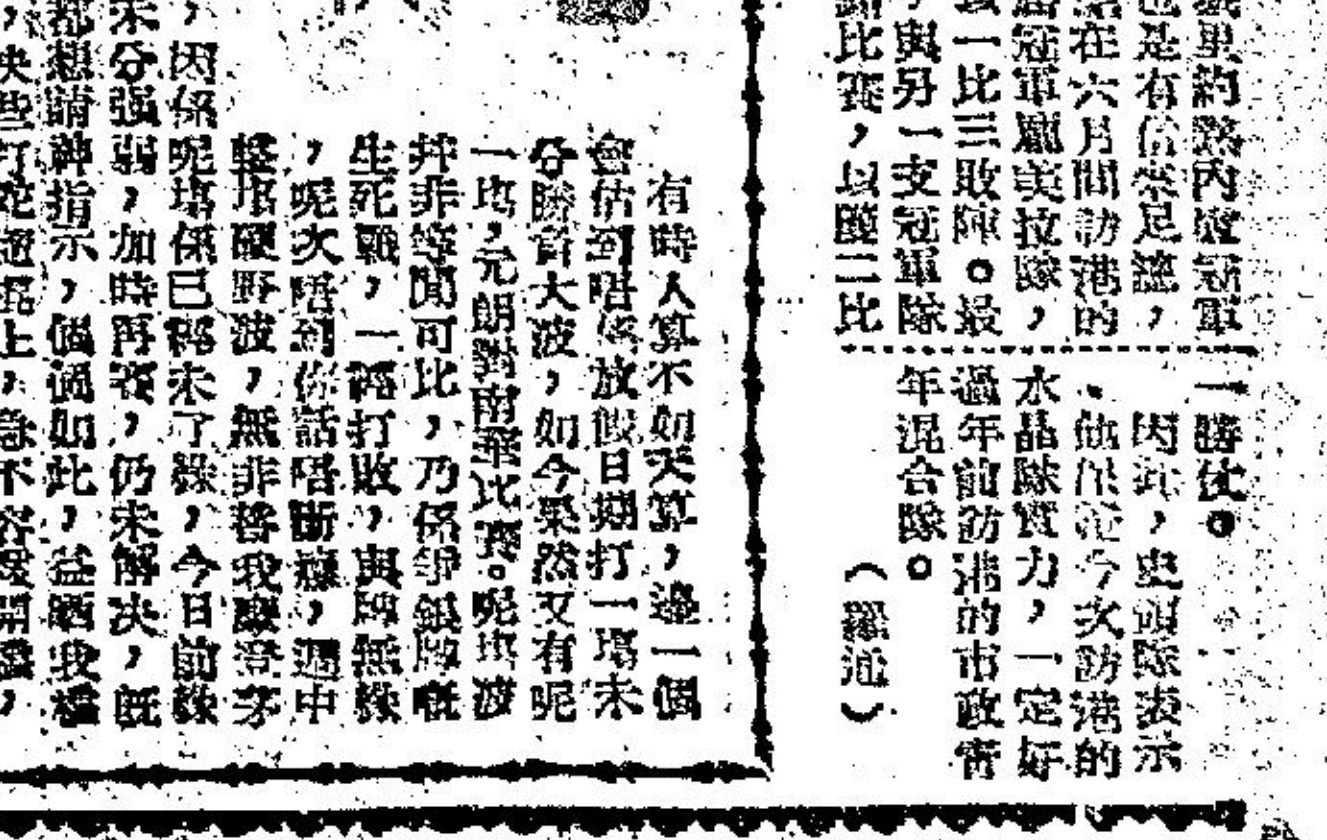 里約熱內盧冠軍
也是有 足 ，
在六月間訪港的
冠軍龐美拉隊，
一比三敗陣。最
，與另一支冠軍隊
比賽，以 二比
一勝仗。
因此，史 隊表示
、他保證今次訪港的
水晶隊實力，一定好
過年前訪港的市政青
年混合隊。
（羅通）
有時人算不如天算，邊一個
會估到唔係放假日期打一場未
分勝負大波，如今果然又有呢
一塲，元朗對南華比賽。呢塲波
幷非等閒可比，乃係爭銀牌嘅
生死戰，一經打敗，與牌無緣
，呢次唔到你話唔斷癮，週中
塲硬野波，無非益我 茅
，因係呢塲係已經未了緣，今日前緣
未分强弱，加時再賽，仍未解決，旣
都想請神指示，個個如此，益晒我檔
，快些打 上，急不容緩開檔，